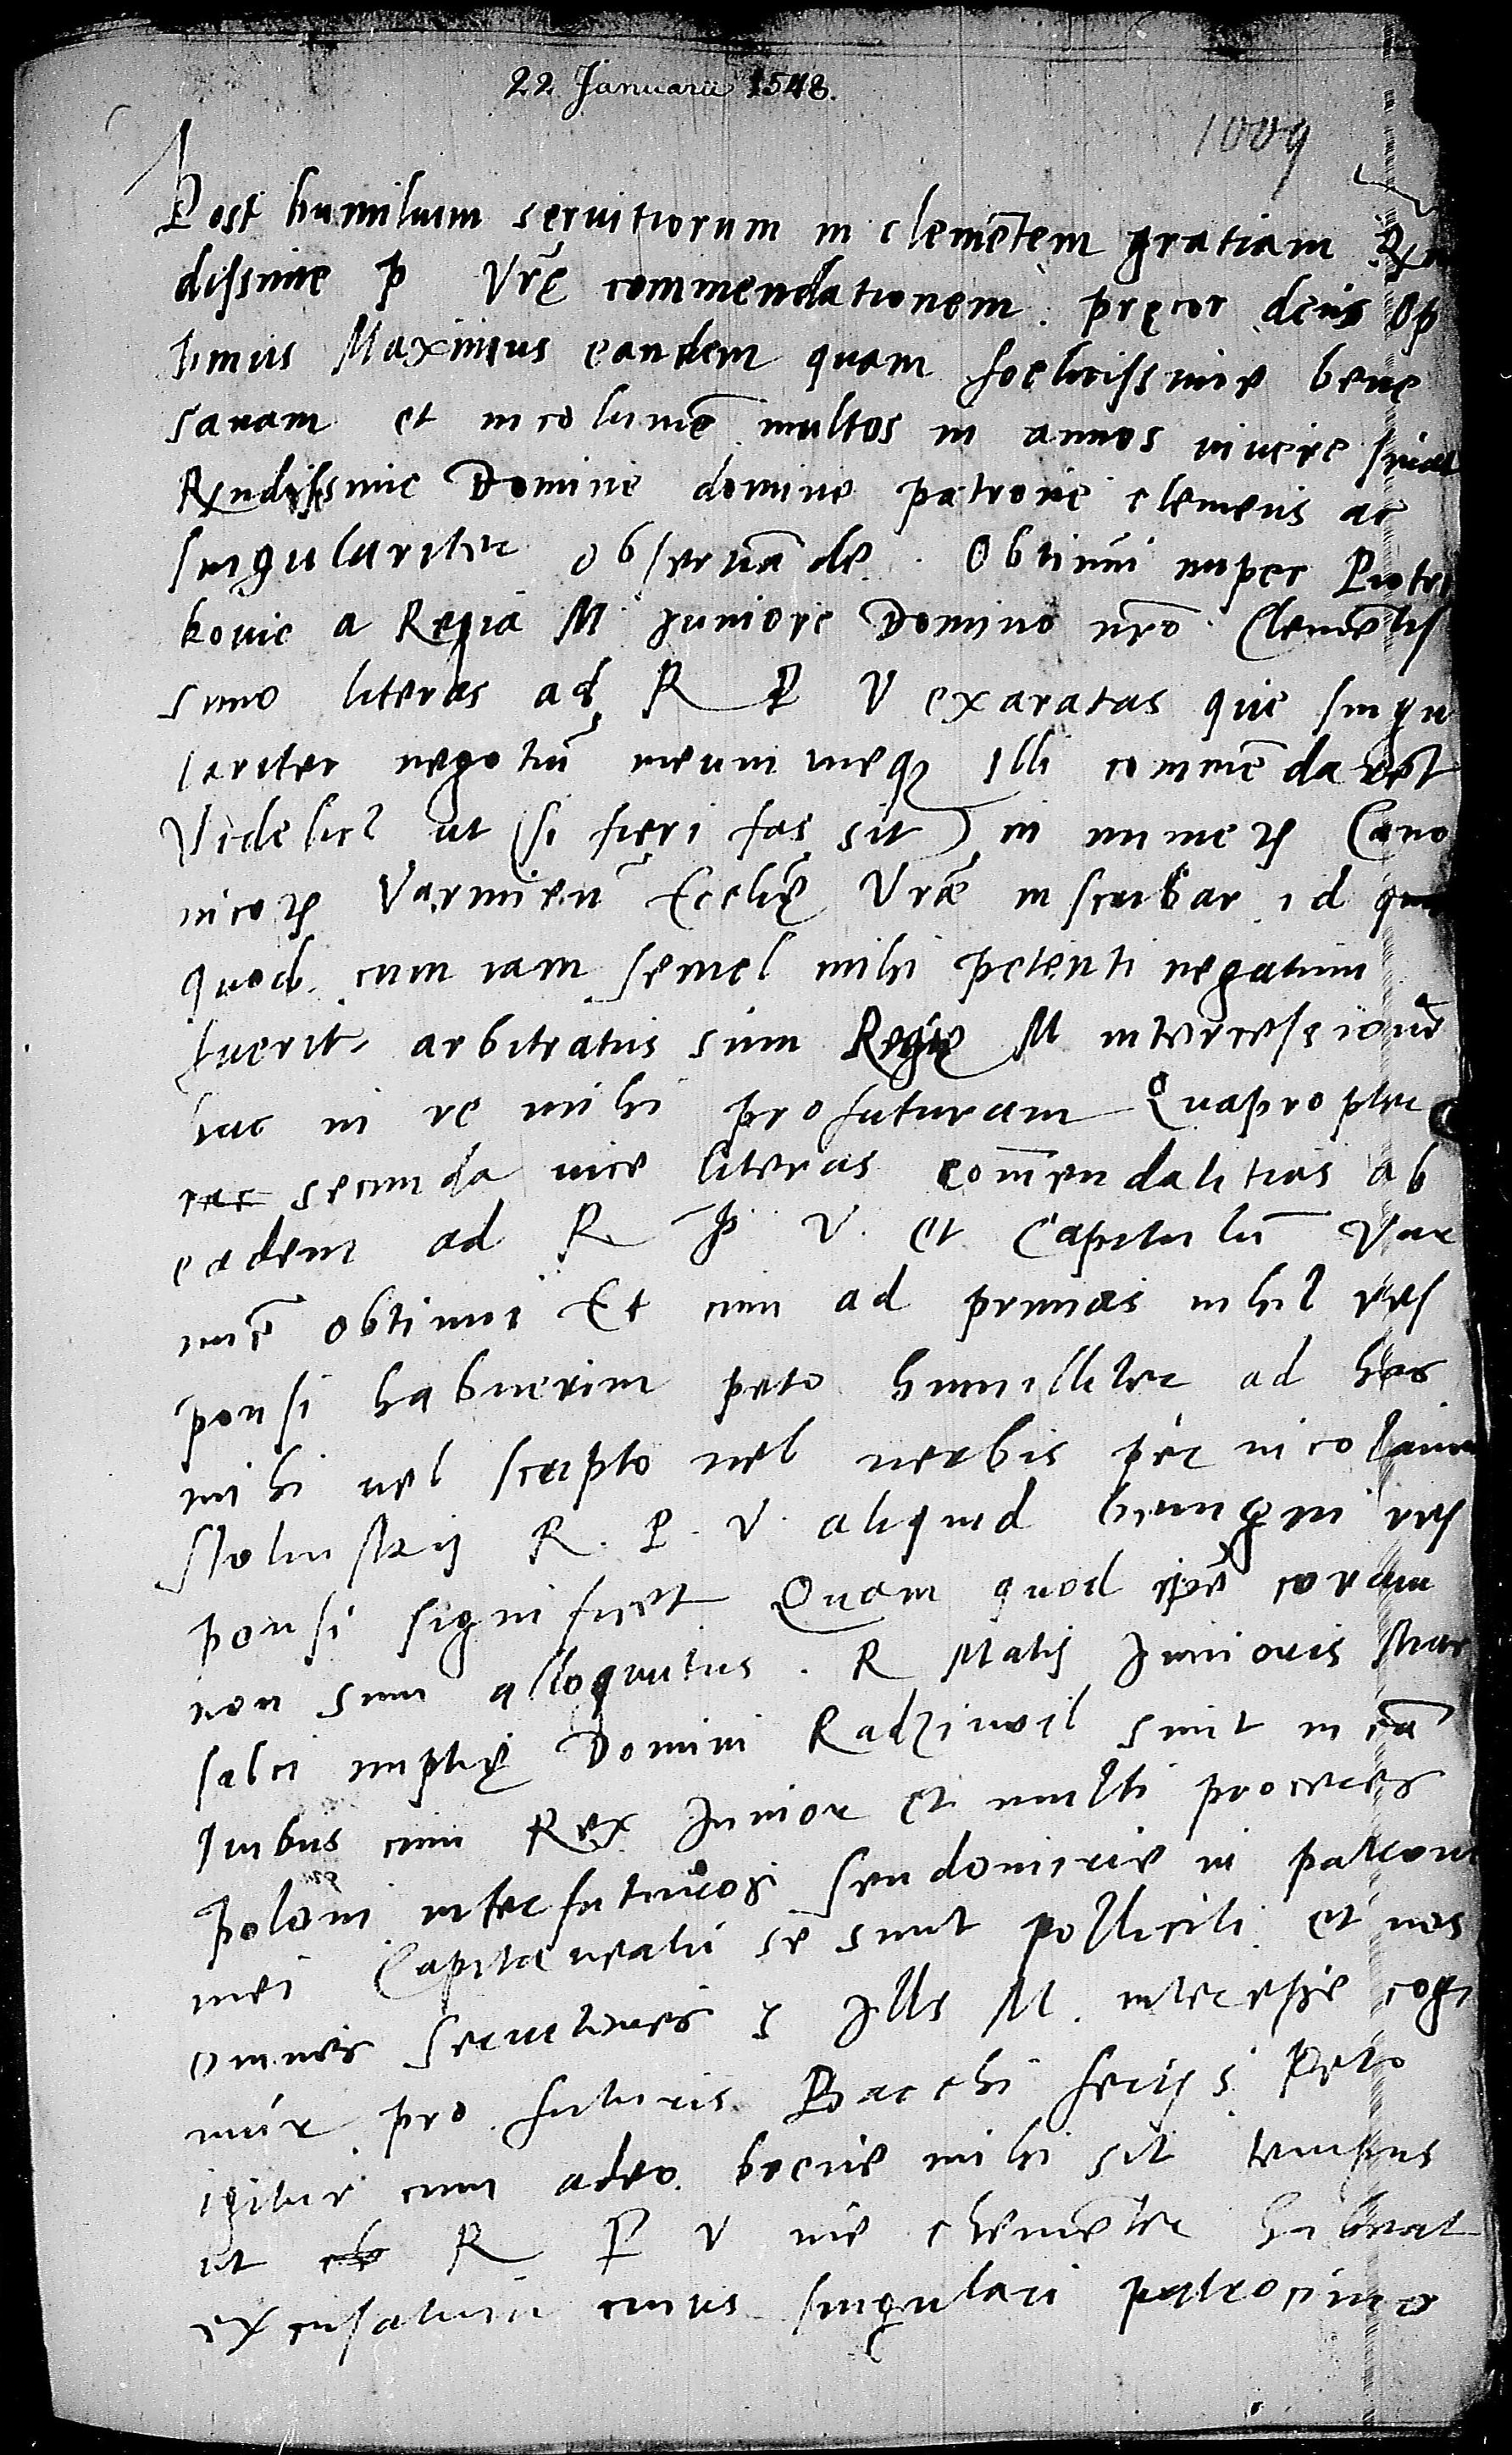 22 Januarii 1548.
1009
Post humilium seruitiorum in clemẽtem gratiam Rxn
dissime p Vrę commendationem. pręcor deus Op
timus Maximus eandem quam foelicissime bene
sanam et incolumẽ multos in annos viuere sinat
Rxndissime Domine domine patrone clemens ac
singulariter obseruãde. Obtinui nuper Piotr
kouie a Regia M Juniore Domino nrõ Clemẽtis
simo literas ad R P V exaratas que singu
lariter negotiũ meum meqʒ illi commẽdarẽt
Videlicꝫ ut (si fieri fas sit) in numeꝝ Cano
nicoꝝ Varmień Ecclię Vrãe inscribar id
quod cum iam semel mihi petenti negatum
fuerit arbitratus sum Regię M intercessionẽ
hac in re mihi profuturam Quapropter
secunda vice literas com̃endatitias ab
eadem ad R P V. et Capitulũ Var
mẽ obtinui Et cum ad primas nihil res
ponsi habuerim peto humilliter ad has
mihi uel scripto uel uerbis per nicolaum
Plotuskij R. P. V. aliquid benigni res
ponsi significet Quam quod ipẽ coram
non sum alloquutus. R Matis Junioris Mar
salci nuptię Domini Radziwil sunt in cã
Quibus cum Rex Junior et multi proceres
poloni interfuturos Sendomirie in patrom
mei Capitaneatu se sunt polliciti et nos
omnes seruitores Illʳ M. interesse cogi
mur pro futuris Bacchi ferijs Peto
igitur cum adeo breue mihi sit tempus
ut R P V me clemẽter habeat
excusatum cuius singulari patrocinio